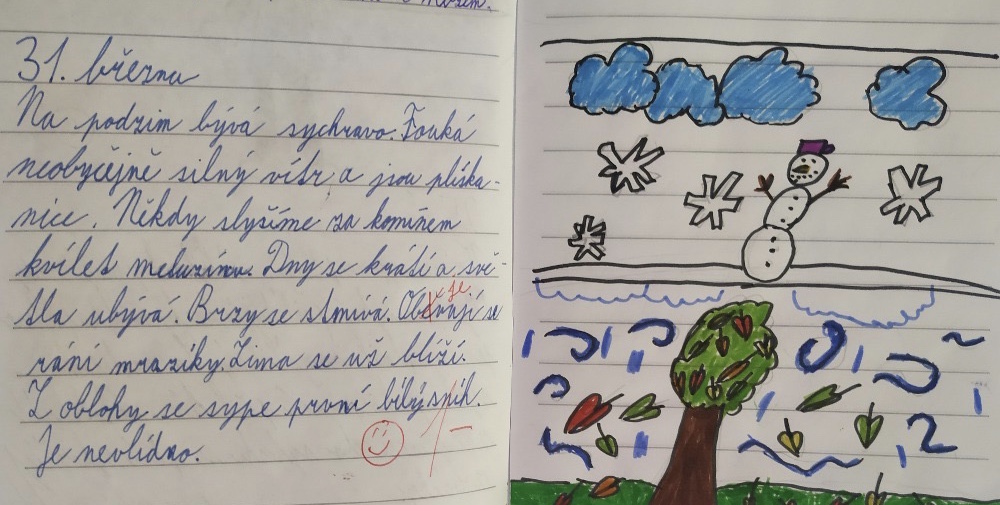 31. března
Na podzim bývá sychravo. Fouká
neobyčejně silný vítr a jsou plíska-
nice. Někdy slyšíme za komínem
kvílet meluzínu. Dny se krátí a svě-
tla ubývá. Brzy se stmívá. Obevují se
je
ráni mrazíky. Zima se už blíží.
Z oblohy se sype první bílý sníh.
Je nevlídno.
1-